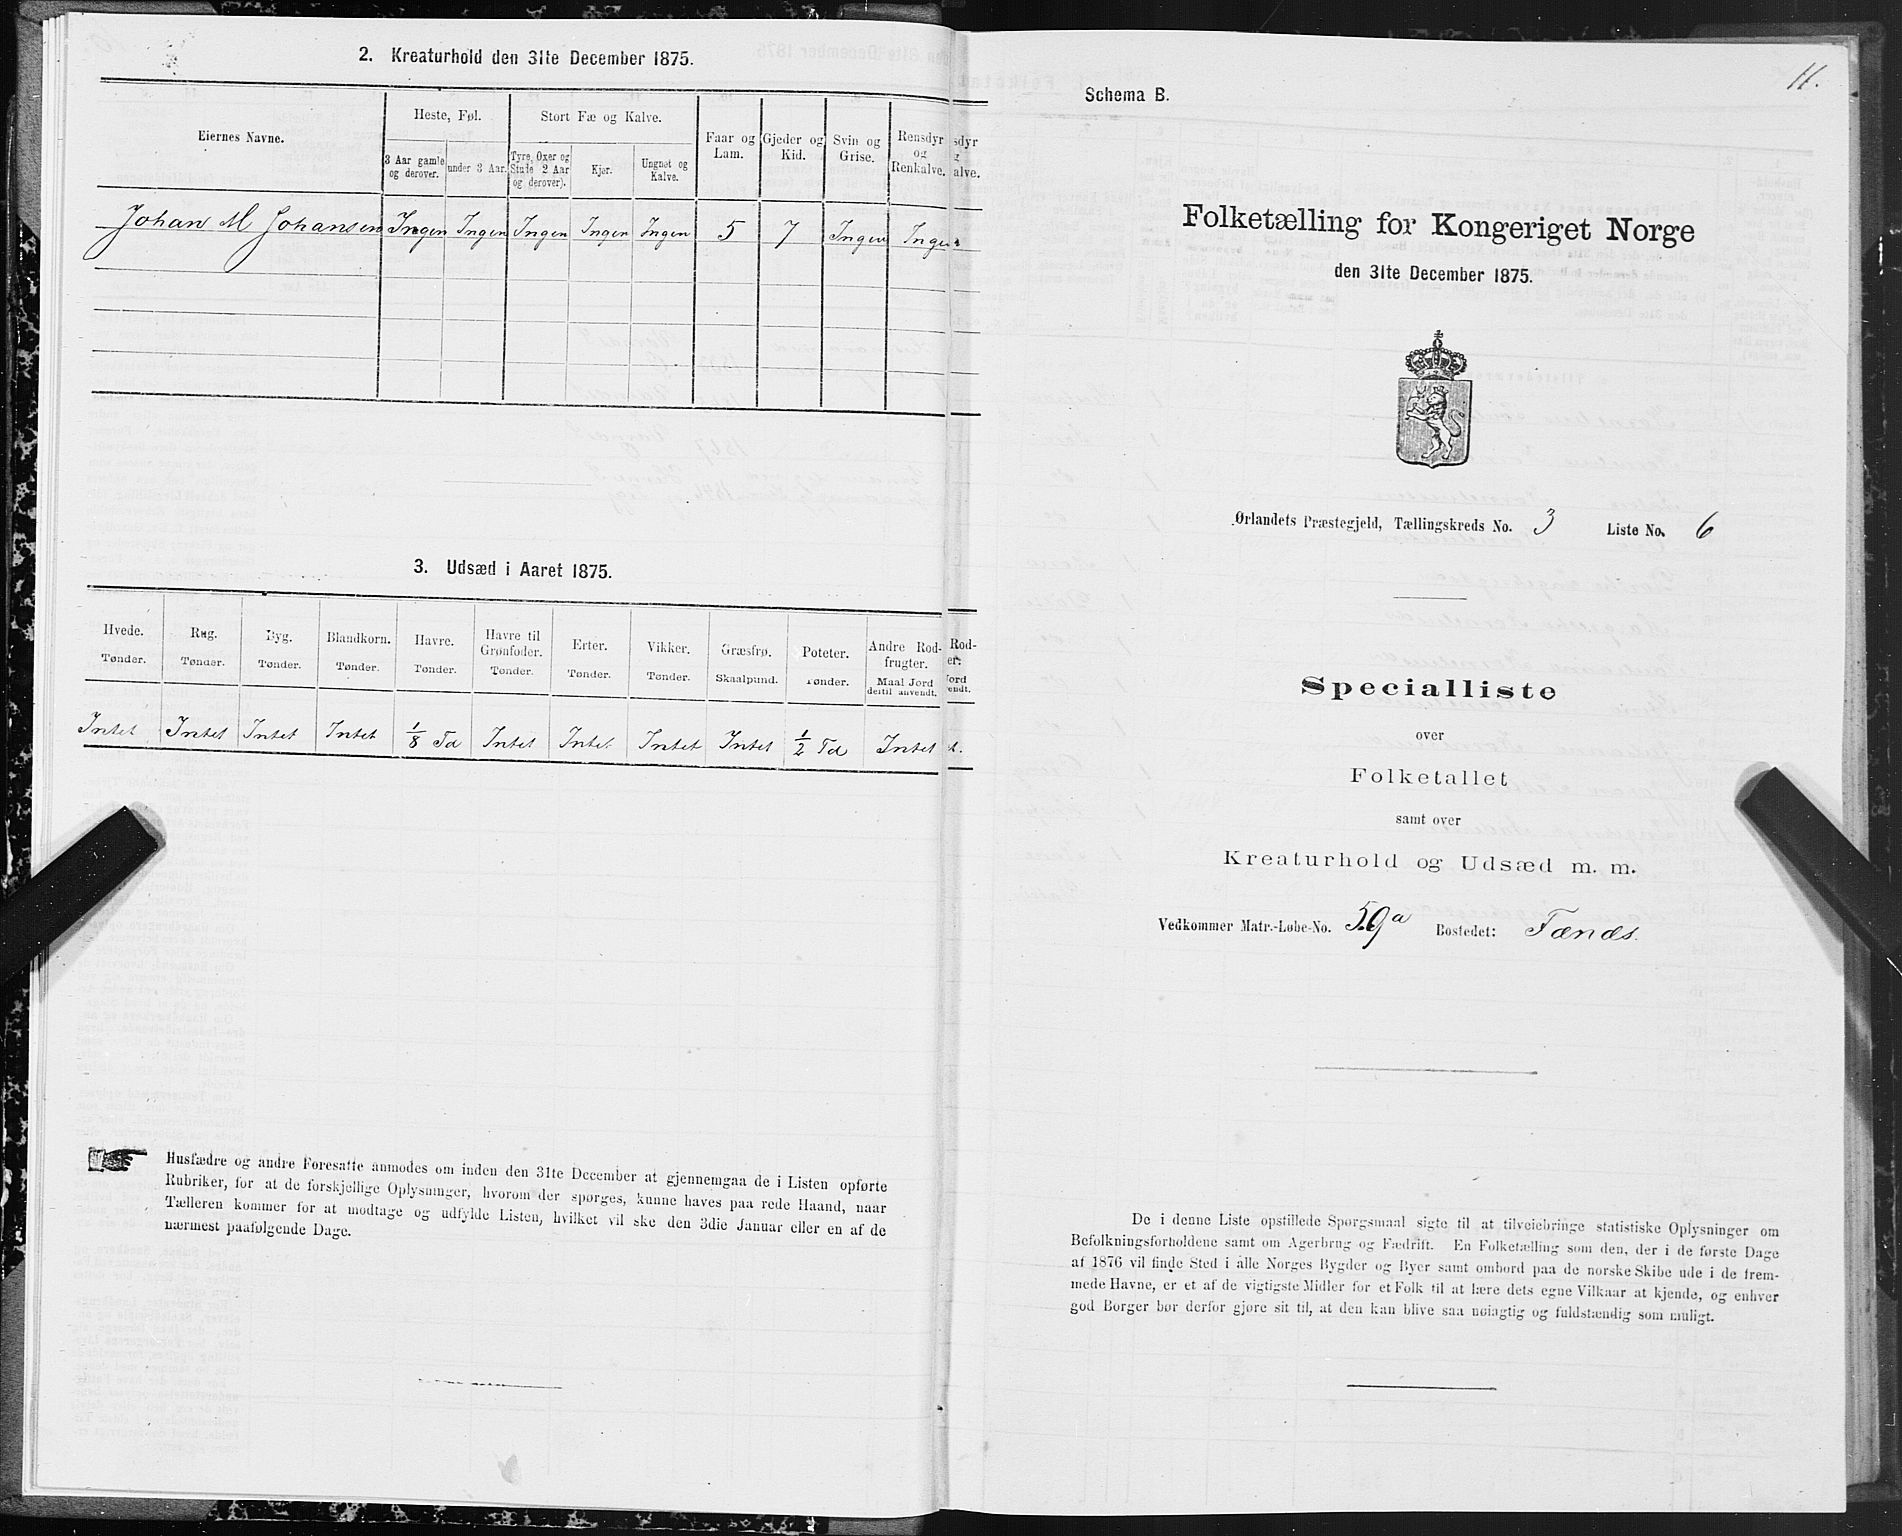 2. Kreaturhold den 31te December 1875.
Eiernes Navne.
Heste, Føl.
Stort Fæ og Kalve.
Faar og Lam.
Gjeder og Kid.
Svin og Grise.
Rensdyr og Renkalve.
3 Aar gamle og derover.
under 3 Aar.
Tyre, Oxer og Stude 2 Aar og derover).
Kjør.
Ungnøt og Kalve.
Johan M Johansen Ingen Ingen Ingen Ingen Ingen 5 7 Ingen Ingen
3. Udsæd i Aaret 1875.
Hvede. Rug. Byg. Blandkorn. Havre. Havre til Grønfoder. Erter. Vikker. Græsfrø. Poteter. Andre Rodfrugter.
Tønder. Tønder. Tønder. Tønder. Tønder. Tønder. Tønder. Tønder. Skaalpund. Tønder. Maal Jord dertil anvendt.
Intet Intet Intet Intet 1/8 Td Intet Intet Intet Intet 1/2 Td Intet
Husfædre og andre Foresatte anmodes om inden den 31te December at gjennemgaa de i Listen opførte
Rubriker, for at de forskjellige Oplysninger, hvorom der spørges, kunne haves paa rede Haand, naar
Tælleren kommer for at modtage og udfylde Listen, hvilket vil ske den 3die Januar eller en af de
nærmest paafølgende Dage.
sdyr
g
alve.
Rod-
er.
Jord
endt.
t.
11.
Schema B.
Folketælling for Kongeriget Norge
den 31te December 1875.
Ørlandets Præstegjeld, Tællingskreds No. 3 Liste No. 6
Specialliste
over
Folketallet
samt over
Kreaturhold og Udsæd m. m.
Vedkommer Matr.-Løbe-No. 59a Bostedet: Fænæs.
De i denne Liste opstillede Spørgsmaal sigte til at tilveiebringe statistiske Oplysninger om
Befolkningsforholdene samt om Agerbrug og Fædrift. En Folketælling som den, der i de første Dage
af 1876 vil finde Sted i alle Norges Bygder og Byer samt ombord paa de norske Skibe ude i de frem-
mede Havne, er et af de vigtigste Midler for et Folk til at lære dets egne Vilkaar at kjende, og enhver
god Borger bør derfor gjøre sit til, at den kan blive saa nøiagtig og fuldstændig som muligt.